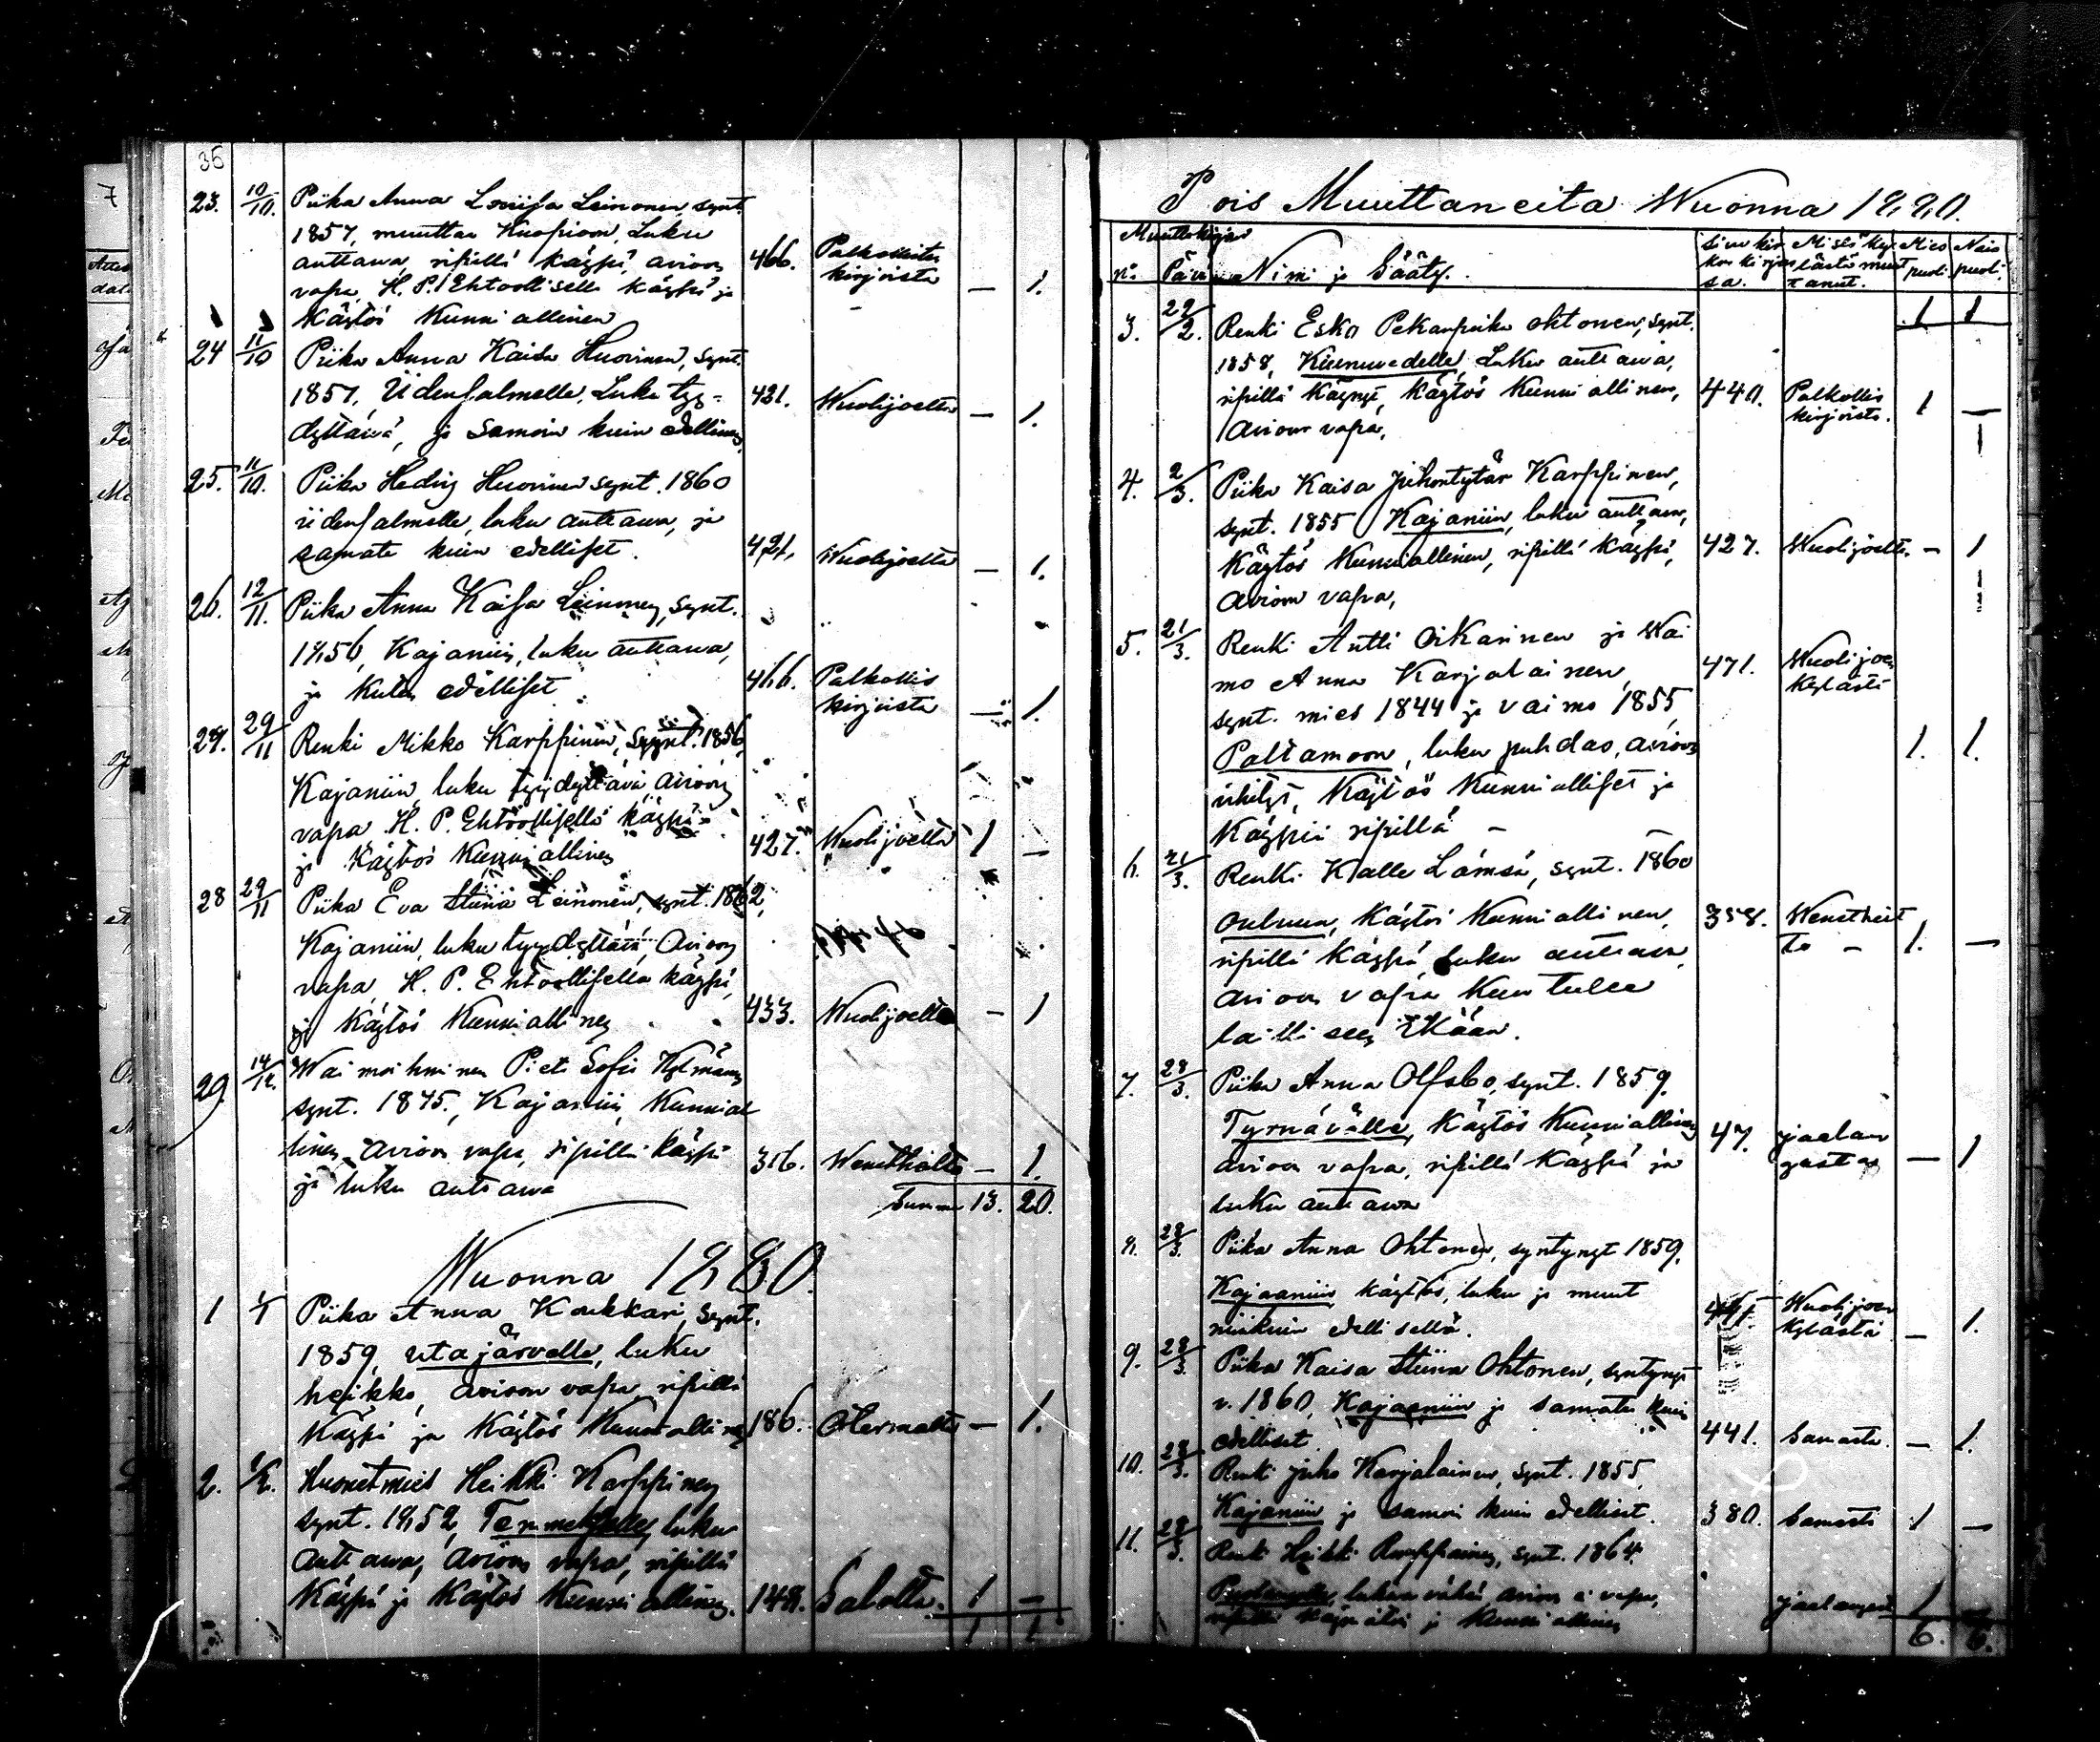 36
23. 10/10. Piika Anna Loviisa Leinonen, synt.
1857, muuttaa Kuopioon, Luku
auttawa, ripillä käypi, avioon 466. Palkollisten
vapa, H. P. Ehtoollisella käypi ja kirjoista — 1.
Käytös Kunniallinen
24 11/10 Piika Anna Kaisa Huovinen, synt.
1857, Iidensalmelle, Luku tyy- 421. Wuolijoelta — 1.
dyttäwä, ja samoin kuin edellinen
25. 11/10. Piika Hedvig Huovinen synt. 1860
iidensalmelle, luku auttawa, ja
samate kuin edelliset. 421. Wuolijoelta — 1.
26. 12/11. Piika Anna Kaisa Leinonen, synt.
1856, Kajaniin, luku auttawa,
ja kuten edelliset 466. Palkollis
kirjoista — 1.
27. 29/11 Renki Mikko Karppinen, synt. 1856,
Kajaniin, luku tyydyttävä, avioon
vapa H. P. Ehtoollisella käypi 427. Wuolijoelta 1 —
ja Käytös Kunniallinen
28 29/11 Piika Eva Stiina Leinonen, synt. 1862,
Kajaniin, luku tyydyttävä, Avioon
vapa, H. P. Ehtoollisella käypi,
ja Käytös Kunniallinen 433. Wuolijoelta — 1
29 14/12. Waimoihminen Sofia
synt. 1845, Kajaniin, Kunnial
linen, avioon vapa, ripillä käypi 356. — 1.
ja luku auttawa
Summa 13. 20.
Wuonna 1880.
1 1/1 Piika Anna Koukkari, synt.
1859, utajärvelle, luku
heikko, avioon vapa, ripillä
Käypi ja Käytös Kunniallinen 186. Otermalta — 1.
2. Heikki Karppinen
synt. 1852, Temmekselle, luku
auttawa, avioon vapa, ripillä
Käypi ja Käytös Kunniallinen. 148. Salolta. 1 —
1 1
Pois Muuttaneita Wuonna 1880.
Muuttokirjan
no. Päivä Nimi ja Sääty. Siwu kir
kon kirjas
sa. Mistä ky
lästä muut
tanut. Mies
puoli Nais
puoli.
1 1
3. 22/2. Renki Esko Pekanpoika ohtonen, synt.
1858, Kiuruvedelle, Luku auttawa,
ripillä käynyt, käytös Kunniallinen, 440. Palkollis
kirjoista. 1 —
Avioon vapa,
4. 2/3. Piika Kaisa Juhontytär Karppinen,
synt. 1855 Kajaniin, luku auttawa,
Käytös Kunniallinen, ripillä käypi, 427. Wuolijoelta. — 1
avioon vapa,
5. 21/3. Renki Antti Oikarinen ja Wai
mo Anna Karjalainen, 471. Wuolijoen
kylästä
synt. mies 1844 ja vaimo 1855,
Paltamoon, luku puhdas, avioon 1. 1.
vihityt, Käytös Kunnialliset ja
Käypii ripillä —
6. 21/3. Renki Kalle Lämsä, synt. 1860
ouluun, Käytös Kunniallinen, 358.
ripillä Käypä, luku auttawa, 1. —
avioon vapa Kun tulee
lailliseen Ikään.
7. 28/3. Piika Anna Olfsbo, synt. 1859.
Tyrnävälle, Käytös Kunniallinen
avioon vapa, ripillä Käypä ja 47. — 1
luku auttawa
8. 28/3. Piika Anna Ohtonen, syntynyt 1859.
Kajaaniin käytös, luku ja muut
niinkuin edellisellä. Wuolijoen
kylästä — 1.
9. 28/3. Piika Kaisa Stiina Ohtonen, syntynyt
v. 1860, Kajaaniin ja samate kuin
edelliset. 441. Samasta. — 1.
10. 28/3. Renki Juho Karjalainen, synt. 1855,
Kajaniin ja samoin kuin edelliset. 380. Samasta 1 —
11. 28/3. Renki Heikki synt. 1864.
luku avioon vapa,
ripillä ja Kunniallinen 1
6. 6.